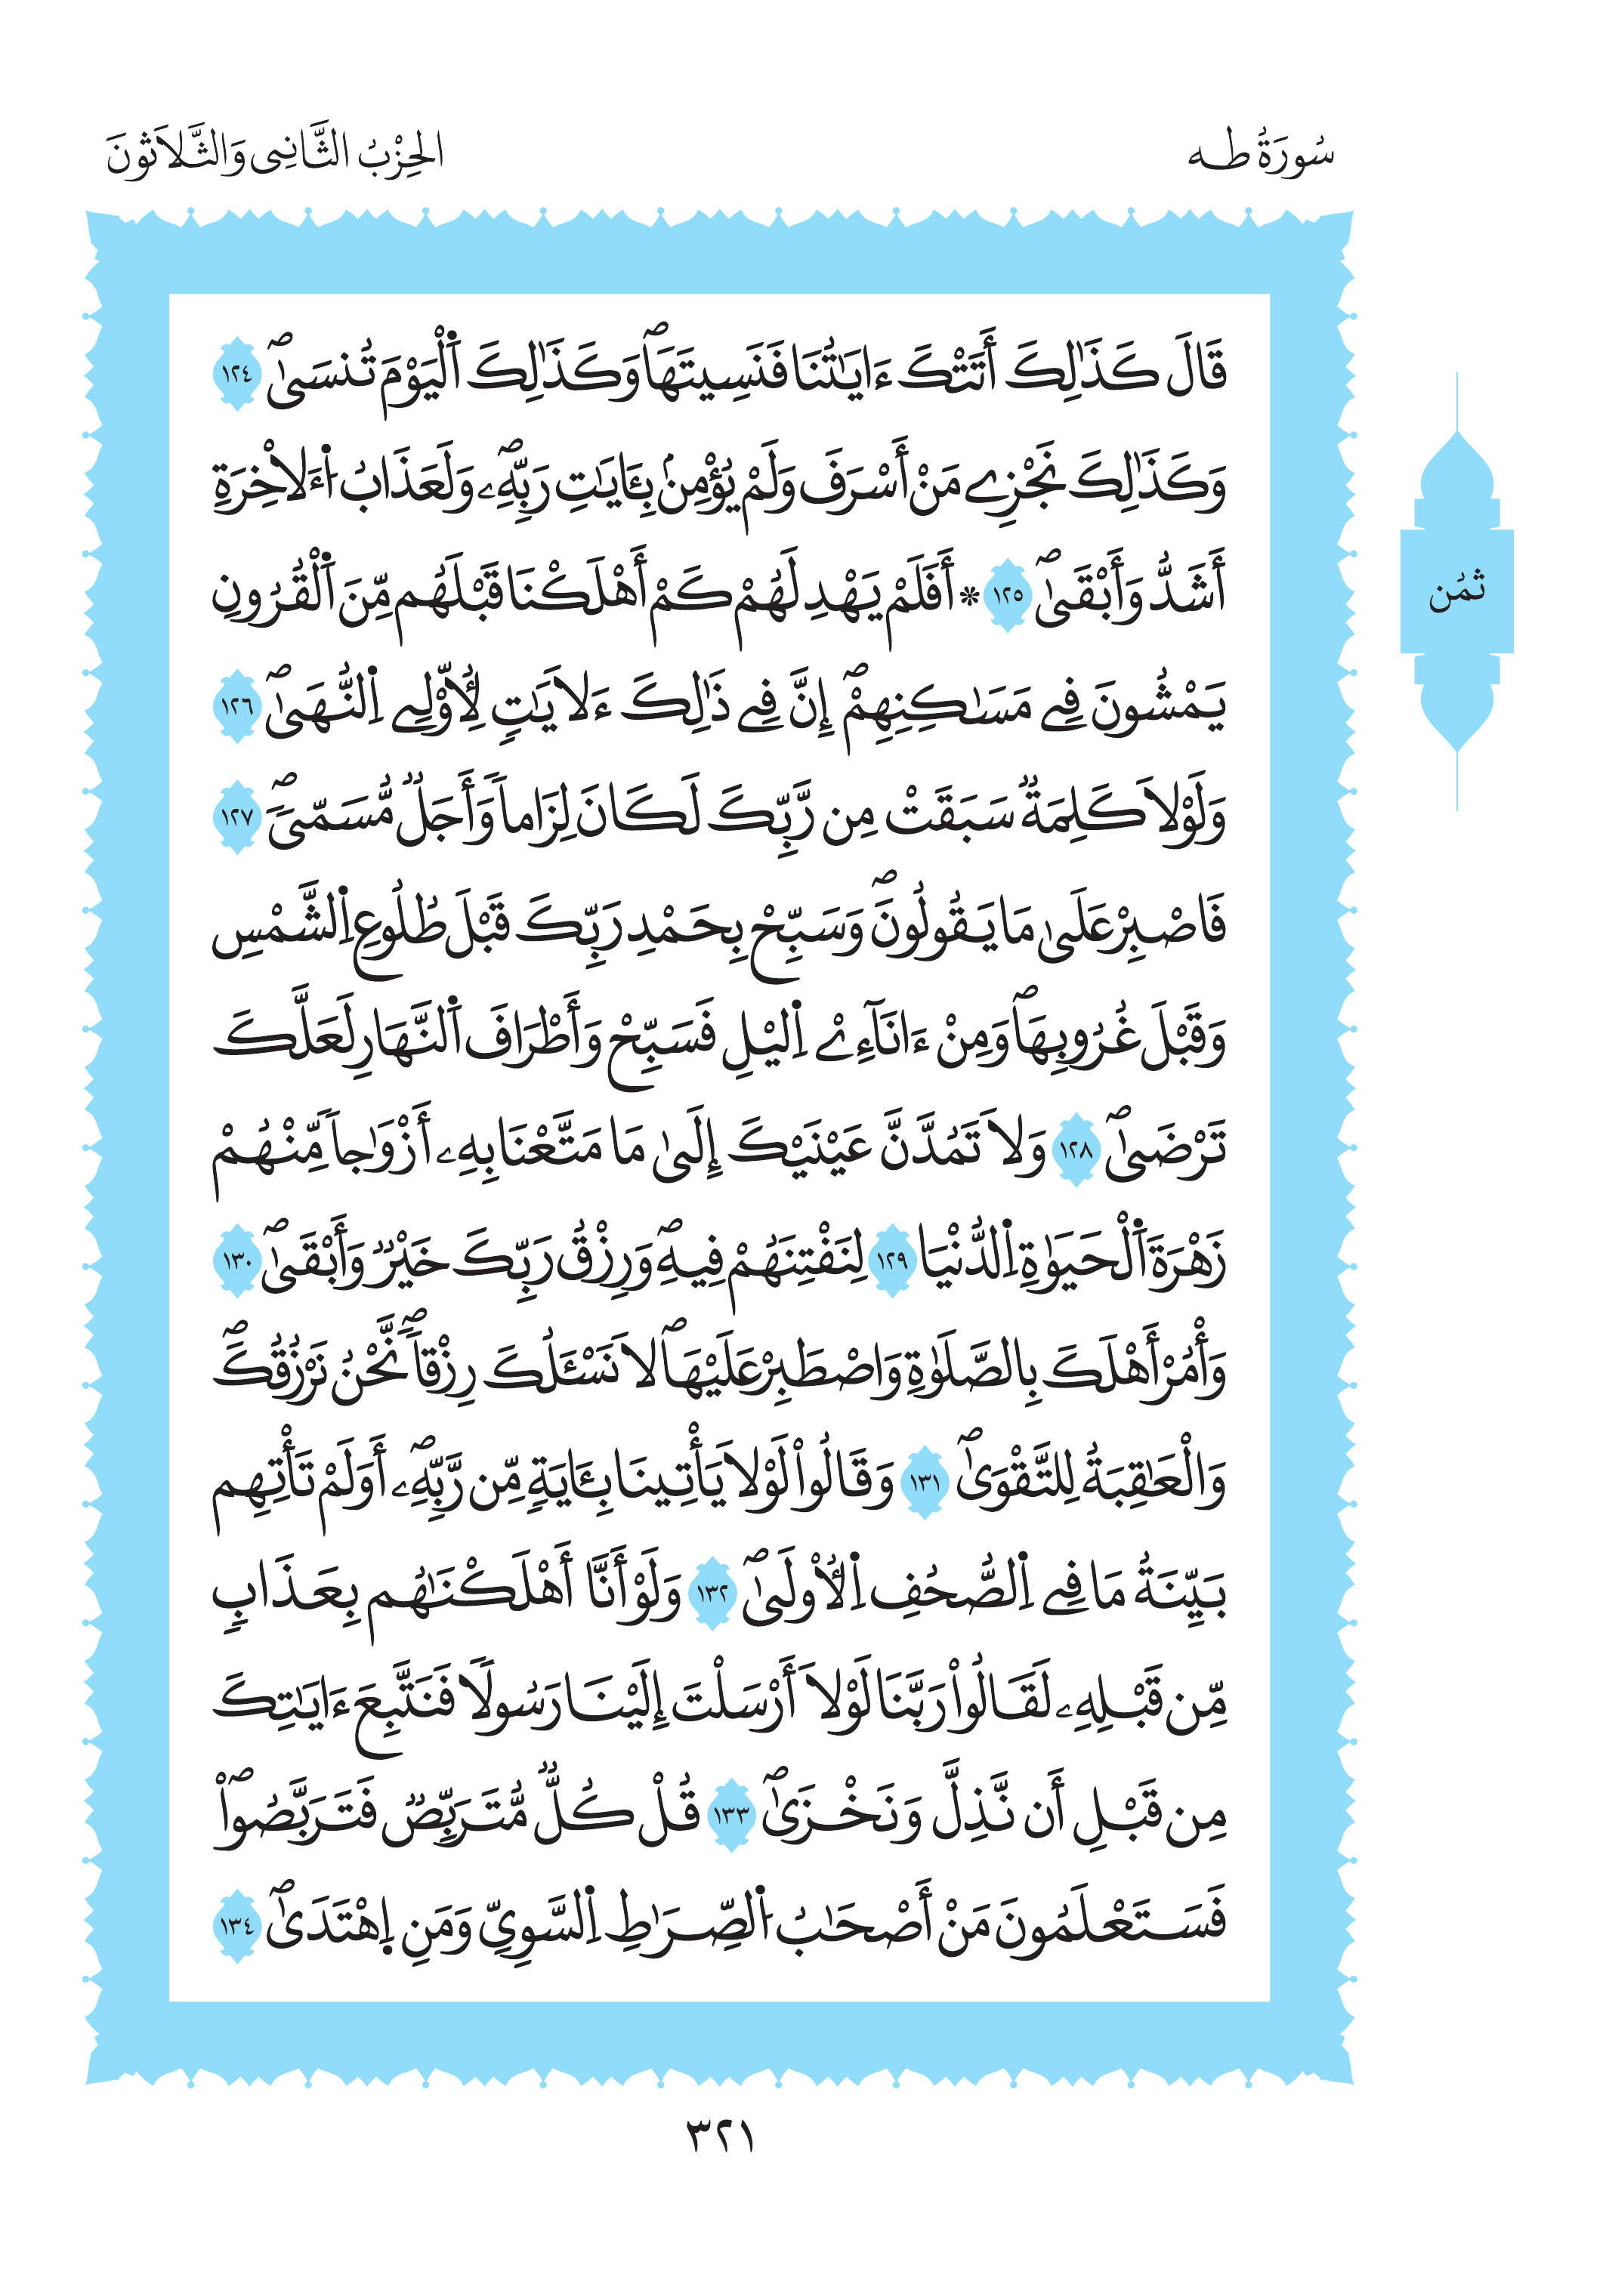 سُورَةُ طـه
الحِزْبُ الثَّانِى وَالثَّلَاثُونَ
قَالَ كَذَٰلِكَ أَتَتْكَ ءَايَٰتُنَا فَنَسِيتَهَاۖ وَكَذَٰلِكَ اَ۬لْيَوْمَ تُنسَىٰۖ ١٢٤
وَكَذَٰلِكَ نَجْزِے مَنْ أَسْرَفَ وَلَمْ يُؤْمِنۢ بِـَٔايَٰتِ رَبِّهِۦۖ وَلَعَذَابُ اُ۬ءَلَاخِرَةِ
أَشَدُّ وَأَبْقَىٰۖ ١٢٥ * أَفَلَمْ يَهْدِ لَهُمْ كَمْ أَهْلَكْنَا قَبْلَهُم مِّنَ اَ۬لْقُرُونِ
يَمْشُونَ فِے مَسَٰكِنِهِمْۖ إِنَّ فِے ذَٰلِكَ ءَلَايَٰتٖ لِّأُوْلِے اِ۬لنُّهَىٰۖ ١٢٦
وَلَوْلَا كَلِمَةٞ سَبَقَتْ مِن رَّبِّكَ لَكَانَ لِزَاماٗ وَأَجَلٞ مُّسَمّىٗۖ ١٢٧
فَاصْبِرْ عَلَىٰ مَا يَقُولُونَۖ وَسَبِّحْ بِحَمْدِ رَبِّكَ قَبْلَ طُلُوعِ اِ۬لشَّمْسِ
وَقَبْلَ غُرُوبِهَاۖ وَمِنْ ءَانَآءِےْ اِ۬ليْلِ فَسَبِّحْ وَأَطْرَافَ اَ۬لنَّهَارِ لَعَلَّكَ
تَرْضَىٰۖ ١٢٨ وَلَا تَمُدَّنَّ عَيْنَيْكَ إِلَىٰ مَا مَتَّعْنَا بِهِۦ أَزْوَٰجاٗ مِّنْهُمْ
زَهْرَةَ اَ۬لْحَيَوٰةِ اِ۬لدُّنْيَا ١٢٩ لِنَفْتِنَهُمْ فِيهِۖ وَرِزْقُ رَبِّكَ خَيْرٞ وَأَبْقَىٰۖ ١٣٠
وَأْمُرْ أَهْلَكَ بِالصَّلَوٰةِ وَاصْطَبِرْ عَلَيْهَاۖ لَا نَسْـَٔلُكَ رِزْقاٗۖ نَّحْنُ نَرْزُقُكَۖ
وَالْعَٰقِبَةُ لِلتَّقْوَىٰۖ ١٣١ وَقَالُواْ لَوْلَا يَأْتِينَا بِـَٔايَةٖ مِّن رَّبِّهِۦۖ أَوَلَمْ تَأْتِهِم
بَيِّنَةُ مَا فِے اِ۬لصُّحُفِ اِ۬لُاْولَىٰۖ ١٣٢ وَلَوْ أَنَّا أَهْلَكْنَٰهُم بِعَذَابٖ
مِّن قَبْلِهِۦ لَقَالُواْ رَبَّنَا لَوْلَا أَرْسَلْتَ إِلَيْنَا رَسُولاٗ فَنَتَّبِعَ ءَايَٰتِكَ
مِن قَبْلِ أَن نَّذِلَّ وَنَخْزَىٰۖ ١٣٣ قُلْ كُلّٞ مُّتَرَبِّصٞ فَتَرَبَّصُواْۖ
فَسَتَعْلَمُونَ مَنْ أَصْحَٰبُ اُ۬لصِّرَٰطِ اِ۬لسَّوِيِّ وَمَنِ اِ۪هْتَدَىٰۖ ١٣٤
ثُمُن
٣٢١